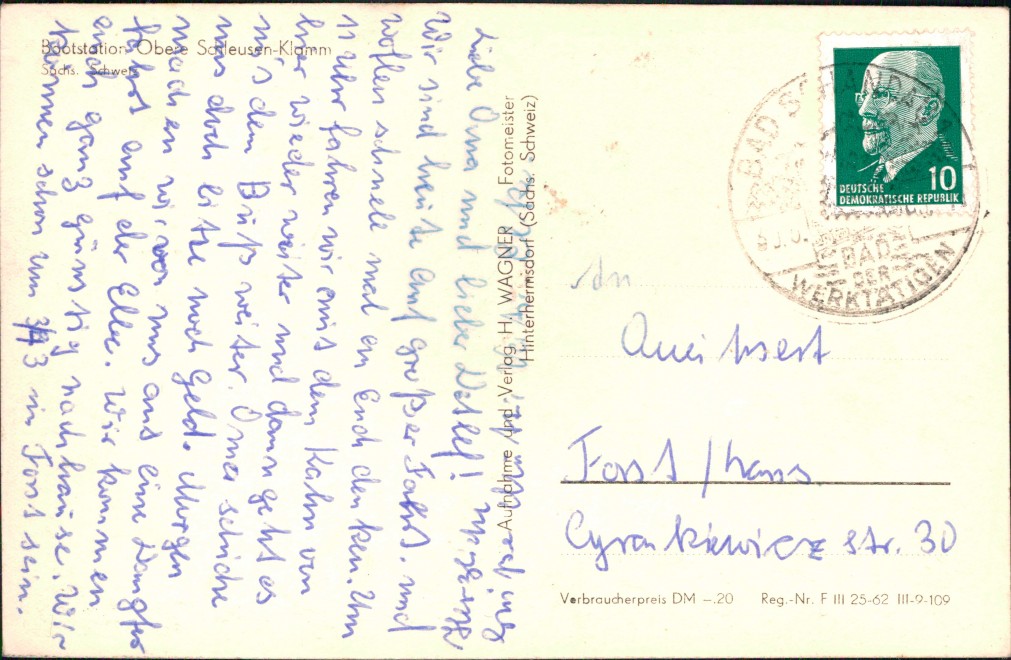 Bootstation Obere Schleusen-Klamm
Sächs. Schweiz
Liebe Oma und lieber Detlef!
Wir sind heute auf großer Fahrt. und
wollen schnell mal an Euch denken. Um
11 Uhr fahren wir mis dem Kahn von
hier wieder weiter und dann geht es
mis dem Buß weiter. Oma schicke
uns doch bitte noch Geld. Morgen
machen wir von uns aus eine Dampfer
fahrt auf der Elbe. Wir kommen
auch ganz günstig nach hause. Wir
können schon um 3 in Forst sein.
Aufnahme und Verlag: H. WAGNER Fotomeister
Hinterhermsdorf (Sächs. Schweiz)
BAD SCHANDAU
BAD
DER
WERKTÄTIGEN
DEUTSCHE
DEMOKRATISCHE REPUBLIK
10
An
Forst /
Cyrankiewicz str. 30
Verbraucherpreis DM –.20 Reg.-Nr. F III 25-62 III-9-109